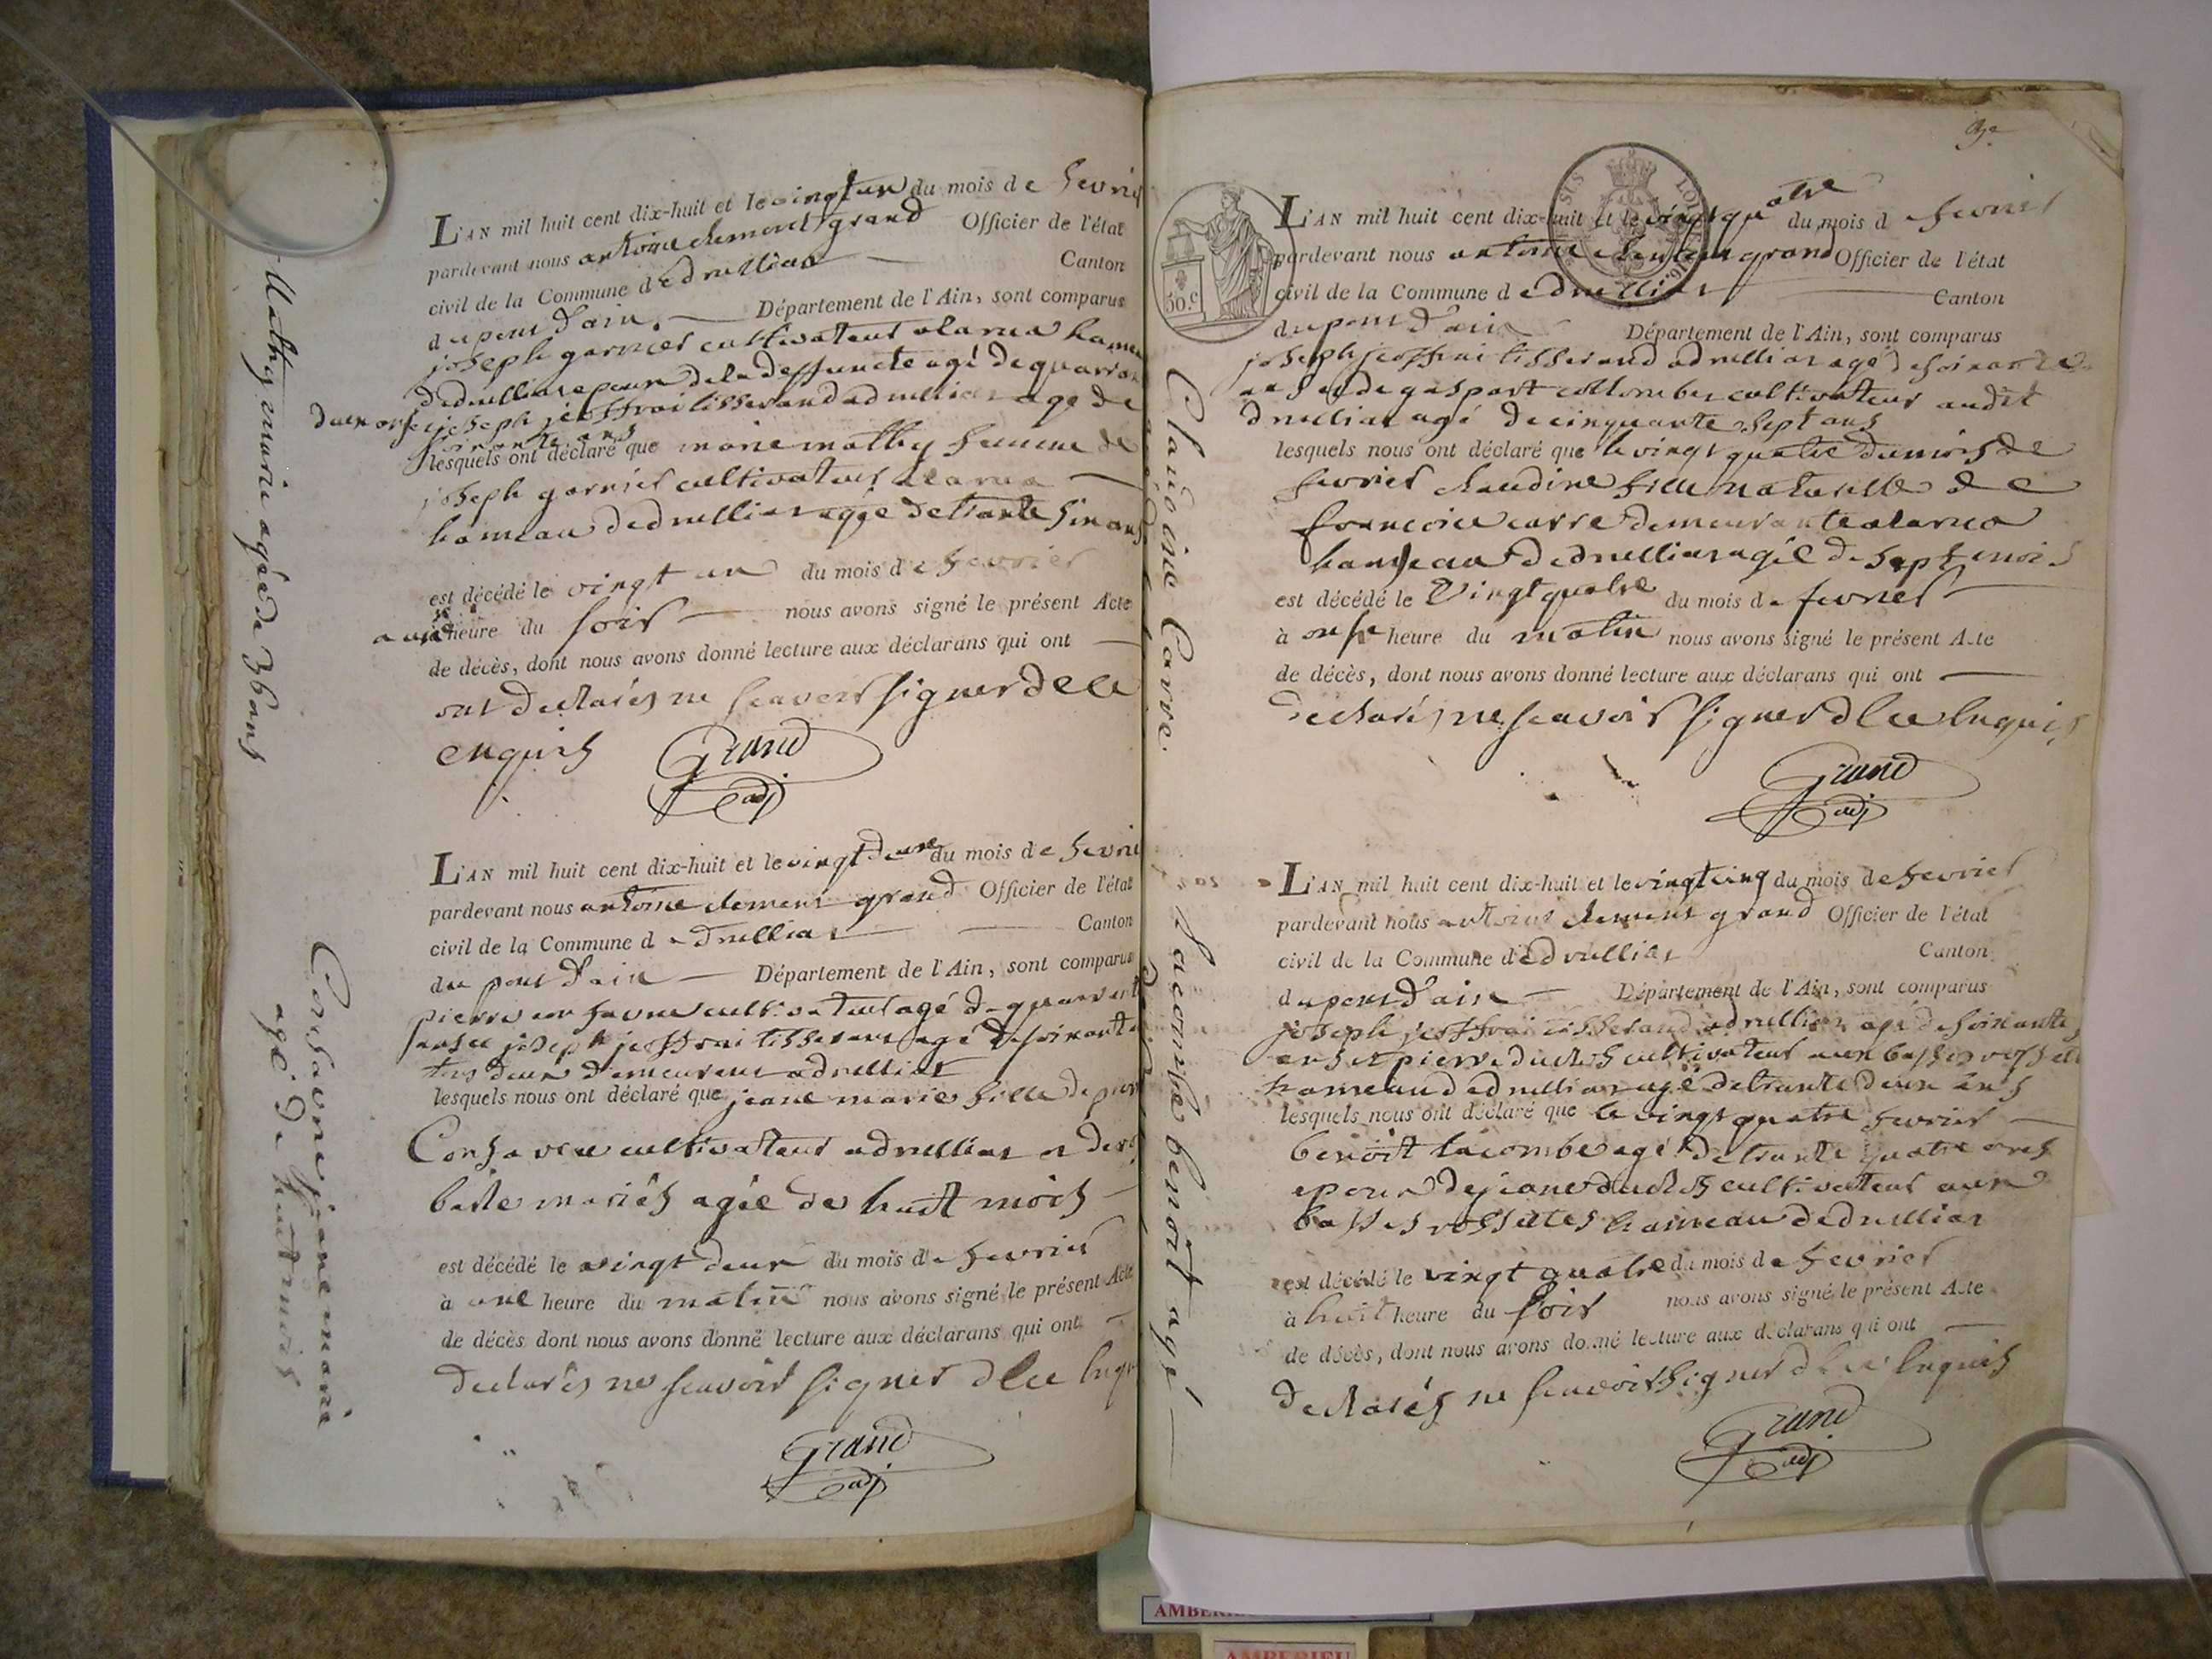 Mathy marie agée de 36 ans
L'AN mil huit cent dix-huit et le vingt un du mois de fevrie
pardevant nous antoine clement grand Officier de l'état
civil de la Commune de druillia Canton
du pont d'ain. Département de l'Ain, sont comparus
joseph garnier cultivateur a la rua hame
de druillia epoux de la deffuncte agé de quaran
deux ans et joseph jeoffrai tisserand a druillia agé de
soixante ans
lesquels ont déclaré que marie mathy femme de
joseph garnier cultivateur a la rua
hameau de druilliat agée de trante six ans
est décédé le vingt un du mois de fevrier
a six heure du soir nous avons signé le présent Acte
de décès, dont nous avons donné lecture aux déclarans qui ont
ont declarés ne scavoir signer de ce
enquis
Grand
adj
Confavre jeane marie
agé de huit mois
L'AN mil huit cent dix-huit et le vingt deux du mois de fevri
pardevant nous antoine clement grand Officier de l'état
civil de la Commune de druilliat Canton
du pont d'ain Département de l'Ain, sont comparus
pierre confavre cultivateur agé de quarant
ans et joseph jeoffrai tisserant agé de soixante
tous deux demeurant a druilliat
lesquels nous ont déclaré que jeane marie fille de pier
Confavre cultivateur a druilliat et de
mariés agée de huit mois
est décédé le vingt deux du mois de fevrier
à une heure du matin nous avons signé le présent Acte
de décès dont nous avons donné lecture aux déclarans qui ont
declarés ne scavoir signer de ce enqu
Grand
adj
50.c
Claudine Carre
L'AN mil huit cent dix-huit et le vingt quatre du mois de fevrier
pardevant nous antoine clement grand Officier de l'état
civil de la Commune de druilliat Canton
du pont d'ain Département de l'Ain, sont comparus
joseph jeoffrai tisserand a druilliat agé de soixante
ans et de gaspart collomber cultivateur audit
druilliat agé de cinquante sept ans
lesquels nous ont déclaré que le vingt quatre du mois de
fevrier claudine fille naturelle de
francoise carre demeurante a la rua
hameau de druilliat agée de sept mois
est décédé le vingt quatre du mois de fevrier
à onse heure du matin nous avons signé le présent Acte
de décès, dont nous avons donné lecture aux déclarans qui ont
declarés ne scavoir signer de ce enquis
Grand
adj
Lacombe benoit agé
L'AN mil huit cent dix-huit et le vingt cinq du mois de fevrier
pardevant nous antoine clement grand Officier de l'état
civil de la Commune de druilliat Canton
du pont d'ain Département de l'Ain, sont comparus
joseph jeoffrai tisserand a druilliat agé de soixante
ans et pierre duclos cultivateur aux basses rossette
hameau de druilliat agé de trante deux ans
lesquels nous ont déclaré que le vingt quatre fevrier
benoit lacombe agé de trante quatre ans
epoux de jeane duclos cultivateur aux
basses rossettes hameau de druilliat
est décédé le vingt quatre du mois de fevrier
à huit heure du soir nous avons signé le présent Acte
de décès, dont nous avons donné lecture aux déclarans qui ont
declarés ne scavoir signer de ce enquis
Grand
adj
AMBERIEU